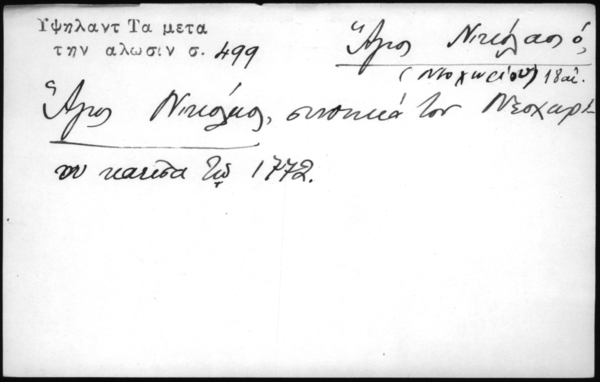 Υψηλαντ Τα μετα
την αλωσιν σ. 499
Ἅγιος Νικόλαος ὁ,
(Νεοχωρίου) 18 αἰ.
Ἅγιος Νικόλαος, συνοικία του Νεοχωρί-
ου καεῖσα τῷ 1772.